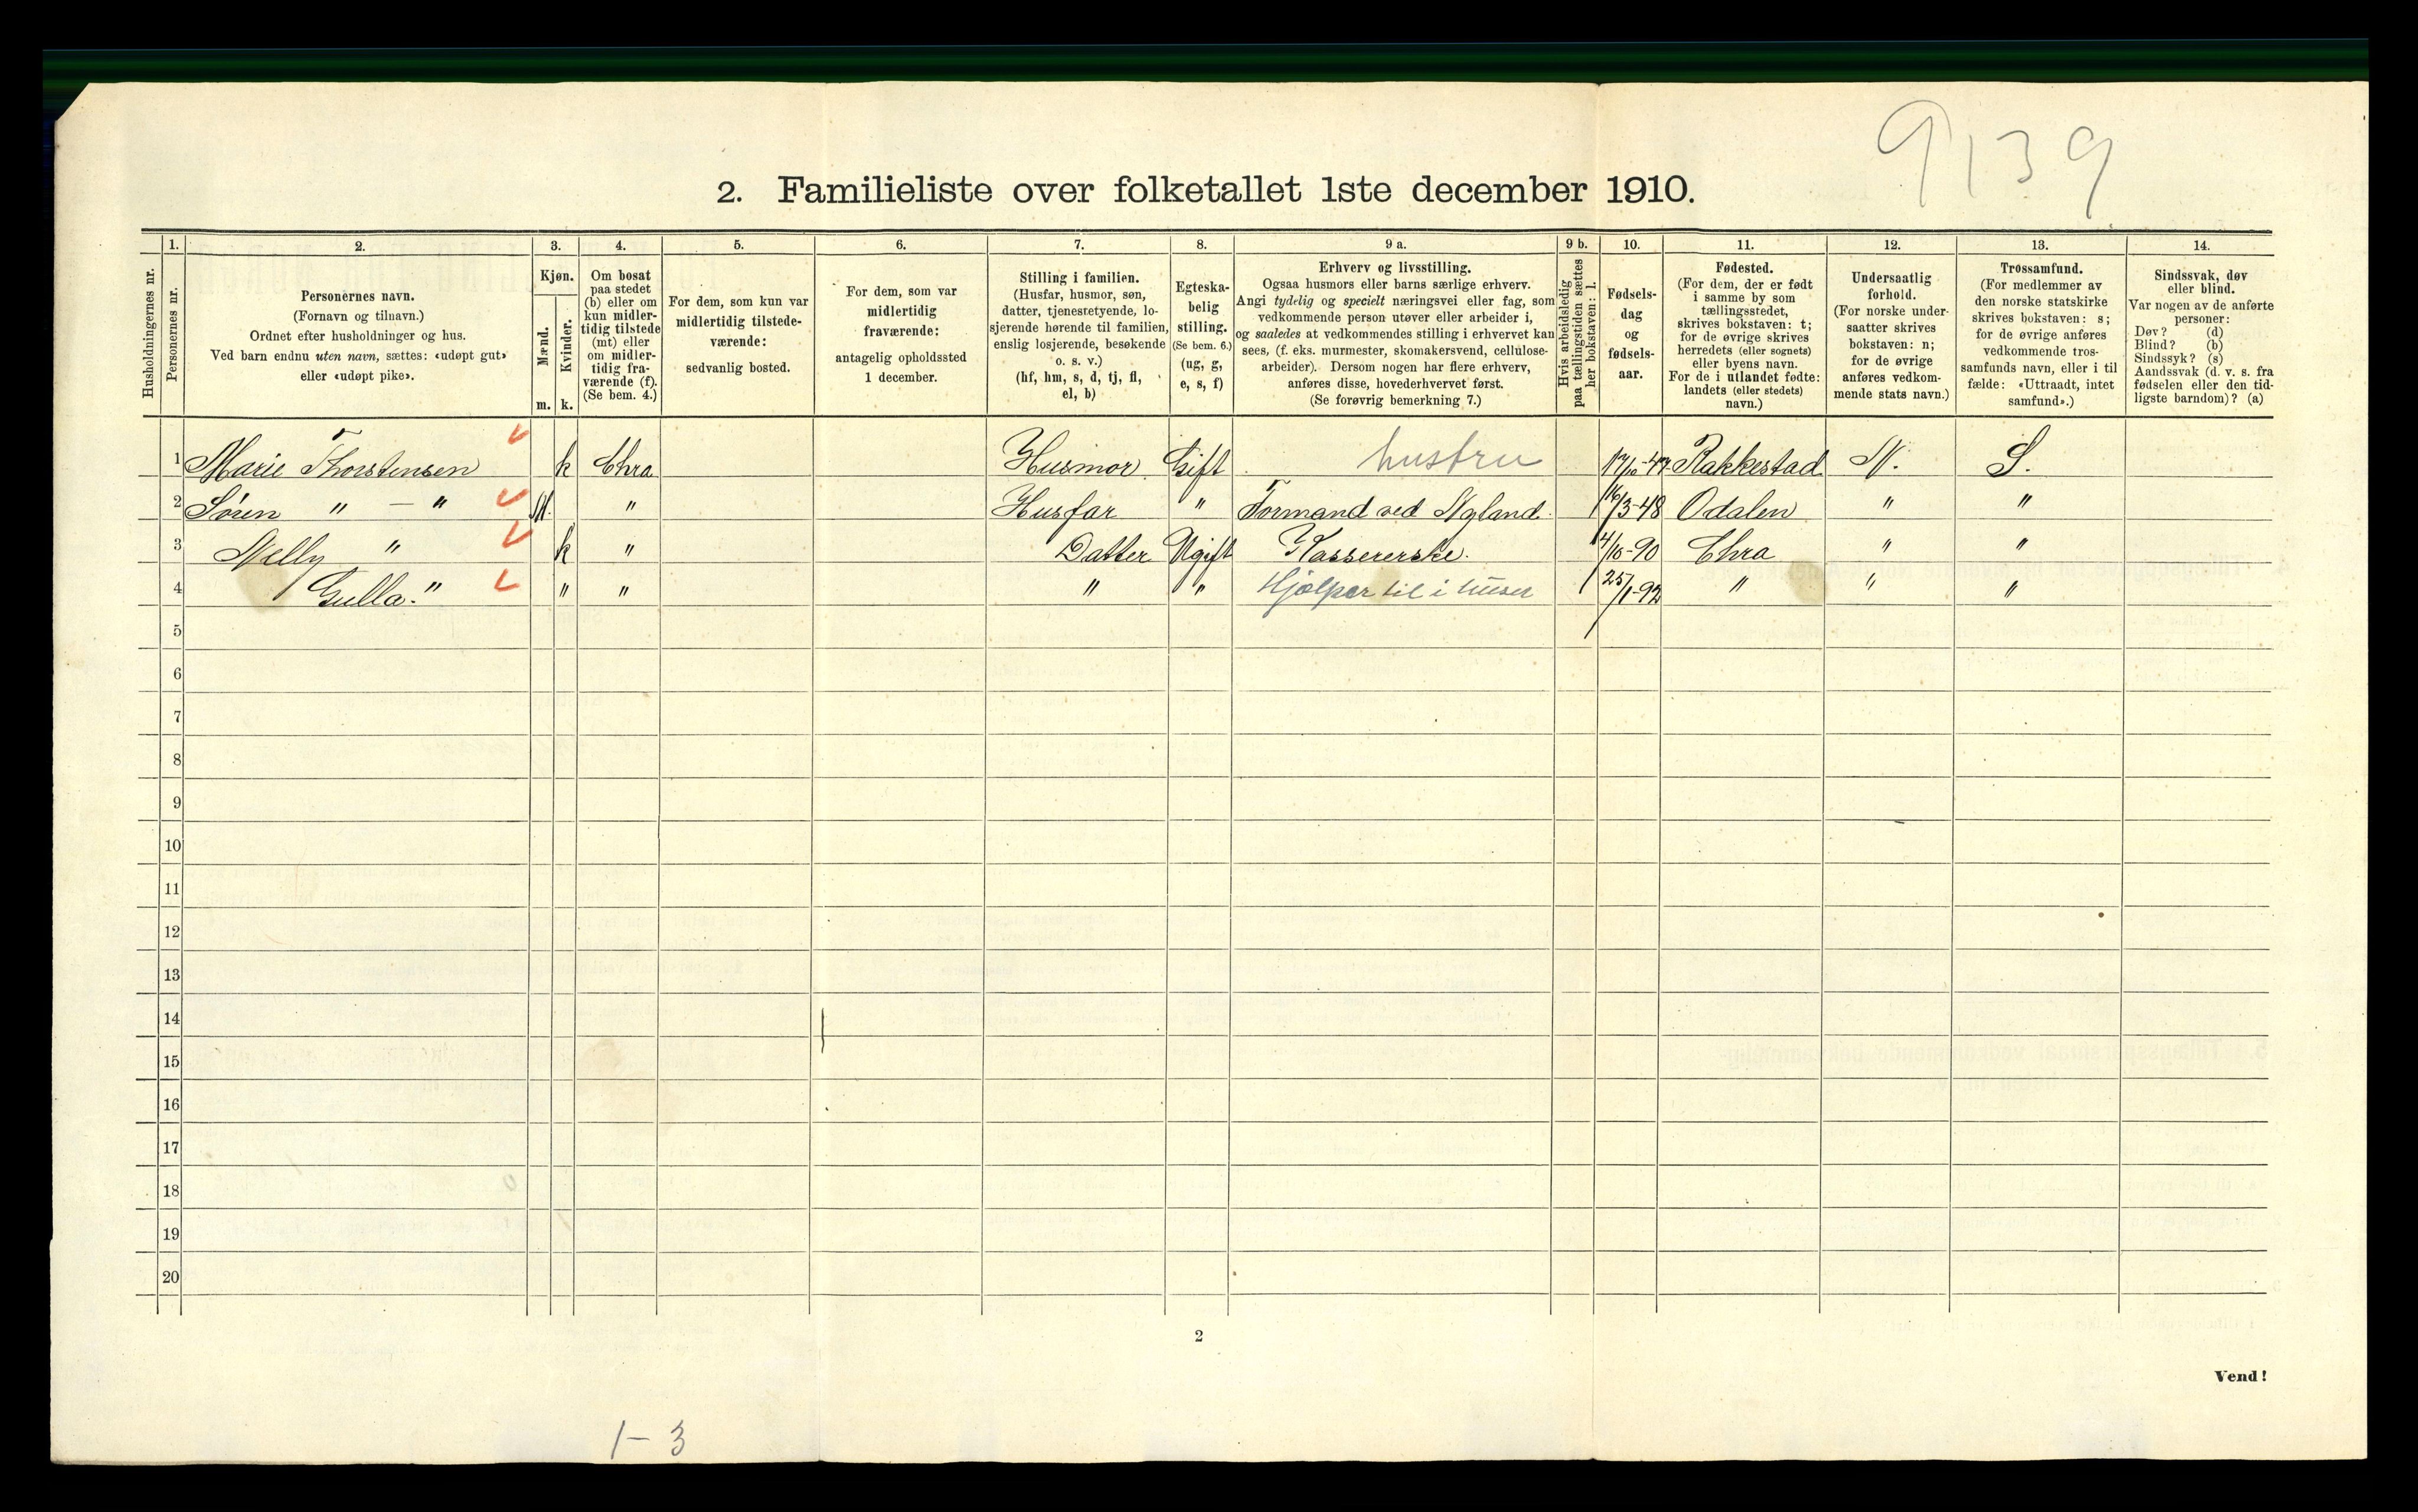 9139
2. Familieliste over folketallet 1ste december 1910.
Husholdningernes nr.
1. Personernes nr.
2. Personernes navn. (Fornavn og tilnavn.) Ordnet efter husholdninger og hus. Ved barn endnu uten navn, sættes: «udøpt gut» eller «udøpt pike».
3. Kjøn. Mænd. m. Kvinder. k.
4. Om bosat paa stedet (b) eller om kun midler-tidig tilstede (mt) eller om midler-tidig fra-værende (f). (Se bem. 4.)
5. For dem, som kun var midlertidig tilstede-værende: sedvanlig bosted.
6. For dem, som var midlertidig fraværende: antagelig opholdssted 1 december.
7. Stilling i familien. (Husfar, husmor, søn, datter, tjenestetyende, lo-sjerende hørende til familien, enslig losjerende, besøkende o. s. v.) (hf, hm, s, d, tj, fl, el, b)
8. Egteska-belig stilling. (Se bem. 6.) (ug, g, e, s, f)
9 a. Erhverv og livsstilling. Ogsaa husmors eller barns særlige erhverv. Angi tydelig og specielt næringsvei eller fag, som vedkommende person utøver eller arbeider i, og saaledes at vedkommendes stilling i erhvervet kan sees, (f. eks. murmester, skomakersvend, cellulose-arbeider). Dersom nogen har flere erhverv, anføres disse, hovederhvervet først. (Se forøvrig bemerkning 7.)
9 b. Hvis arbeidsledig paa tællingstiden sættes her bokstaven: l.
10. Fødsels-dag og fødsels-aar.
11. Fødested. (For dem, der er født i samme by som tællingsstedet, skrives bokstaven: t; for de øvrige skrives herredets (eller sognets) eller byens navn. For de i utlandet fødte: landets (eller stedets) navn.)
12. Undersaatlig forhold. (For norske under-saatter skrives bokstaven: n; for de øvrige anføres vedkom-mende stats navn.)
13. Trossamfund. (For medlemmer av den norske statskirke skrives bokstaven: s; for de øvrige anføres vedkommende tros-samfunds navn, eller i til fælde: «Uttraadt, intet samfund».)
14. Sindssvak, døv eller blind. Var nogen av de anførte personer: Døv? (d) Blind? (b) Sindssyk? (s) Aandssvak (d. v. s. fra fødselen eller den tid-ligste barndom)? (a)
1 Marie Thorstensen k Chra Husmor Gift hustru 17/10-47 Rakkestad N. S.
2 Søren " — " M. " Husfar " Formand ved Nyland. 16/3-48 Odalen " "
3 Nelly " k " Datter Ugift Kassererske. 4/10-90 Chra " "
4 Gulla. " " " " " Hjælper til i huset 25/1-92 " " "
5
6
7
8
9
10
11
12
13
14
15
16
17
18
19
20
2
Vend!
1-3